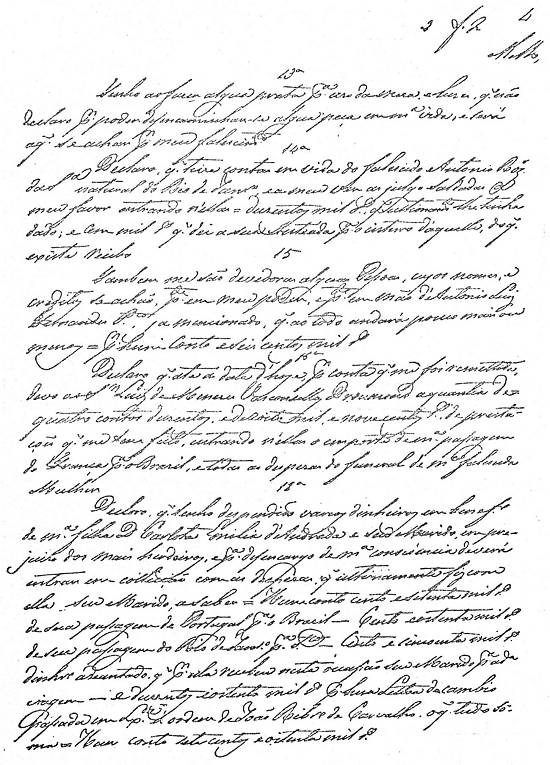 3 f. 2 4
Mello,
13ª
Tenho ao faser alguma prata pª uso da mesa, e lusea, q. não
declaro pʳ poder desencaminhar-se alguma peça em mª vida, e será
aq. se achar pʳ meu falecimᵗᵒ
14ª
Declaro, q. tive contas em vida do falecido Antonio Roz
das natural do Rio de Janrº, e a meu ver as julgo saldadas
meu favor entrando nellas = dusentos mil rˢ q. ultimamᵗᵉ lhe tinha
dado; e cem mil rˢ q. dei a sua Enteada pʳ inteiro daquelle, do q.
existe recibo
15
Tambem me são devedoras algumas Pessoas, cujos nomes, e
creditos se achão, pᵗᵉ em meu poder, e pᵗᵉ em mão de Antonio Luiz
Fernandes Pᵗᵒ, ja mencionado, q. ao todo andará pouco mais ou
menos = pʳ hum Conto e seis centos mil rˢ
16ª
Declaro, q. ate a data d'hoje, pʳ conta q. me foi remettida,
devo ao Sʳ Luiz de Menezes Vasconcellos Drumond a quantia de
quatro contos dusentos, e desenove mil, e nove centos rˢ de presta
ções q. me tem feito, entrando nellas o importe de mª passagem
de França pª o Brasil, e todas as despesas do funeral de mª falecida
Mulher
18ª
Declaro, q. tenho despendido varios dinheiros em beneficº
de mª filha D Carlota Emilia d'Andrada e seu Marido, em pre-
juiso dos mais herdeiros, e pª desencargo de mª consciencia deverá
entrar em collação com as despesas, q. ultimamente fiz com
ella seu Marido, a saber = Hum conto cento e setenta mil rˢ
de sua passagem de Portugal pª o Brasil — Cento e oitenta mil rˢ
de sua passagem do Rio de Janrº pª — Cento e cincoenta mil rˢ
dinhrº adiantado, q. pʳ ella recebeu nesta occasião seu Marido pª a da
viagem — e dusentos e oitenta mil rˢ pʳ huma Letra de cambio
passada em á ordem de João Ribrº de Carvalho, o q. tudo so-
ma = Hum conto sete centos e oitenta mil rˢ